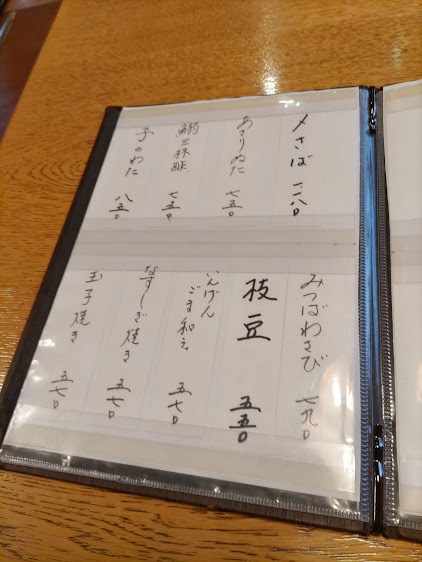 〆さば
あさりぬた 七五〇
鰯三杯酢 七五〇
子のわた 八五〇
みつばわさび 七九〇
枝豆 五五〇
いんげん
ごま和え 五七〇
なすしぎ焼き 五七〇
玉子焼き 五七〇